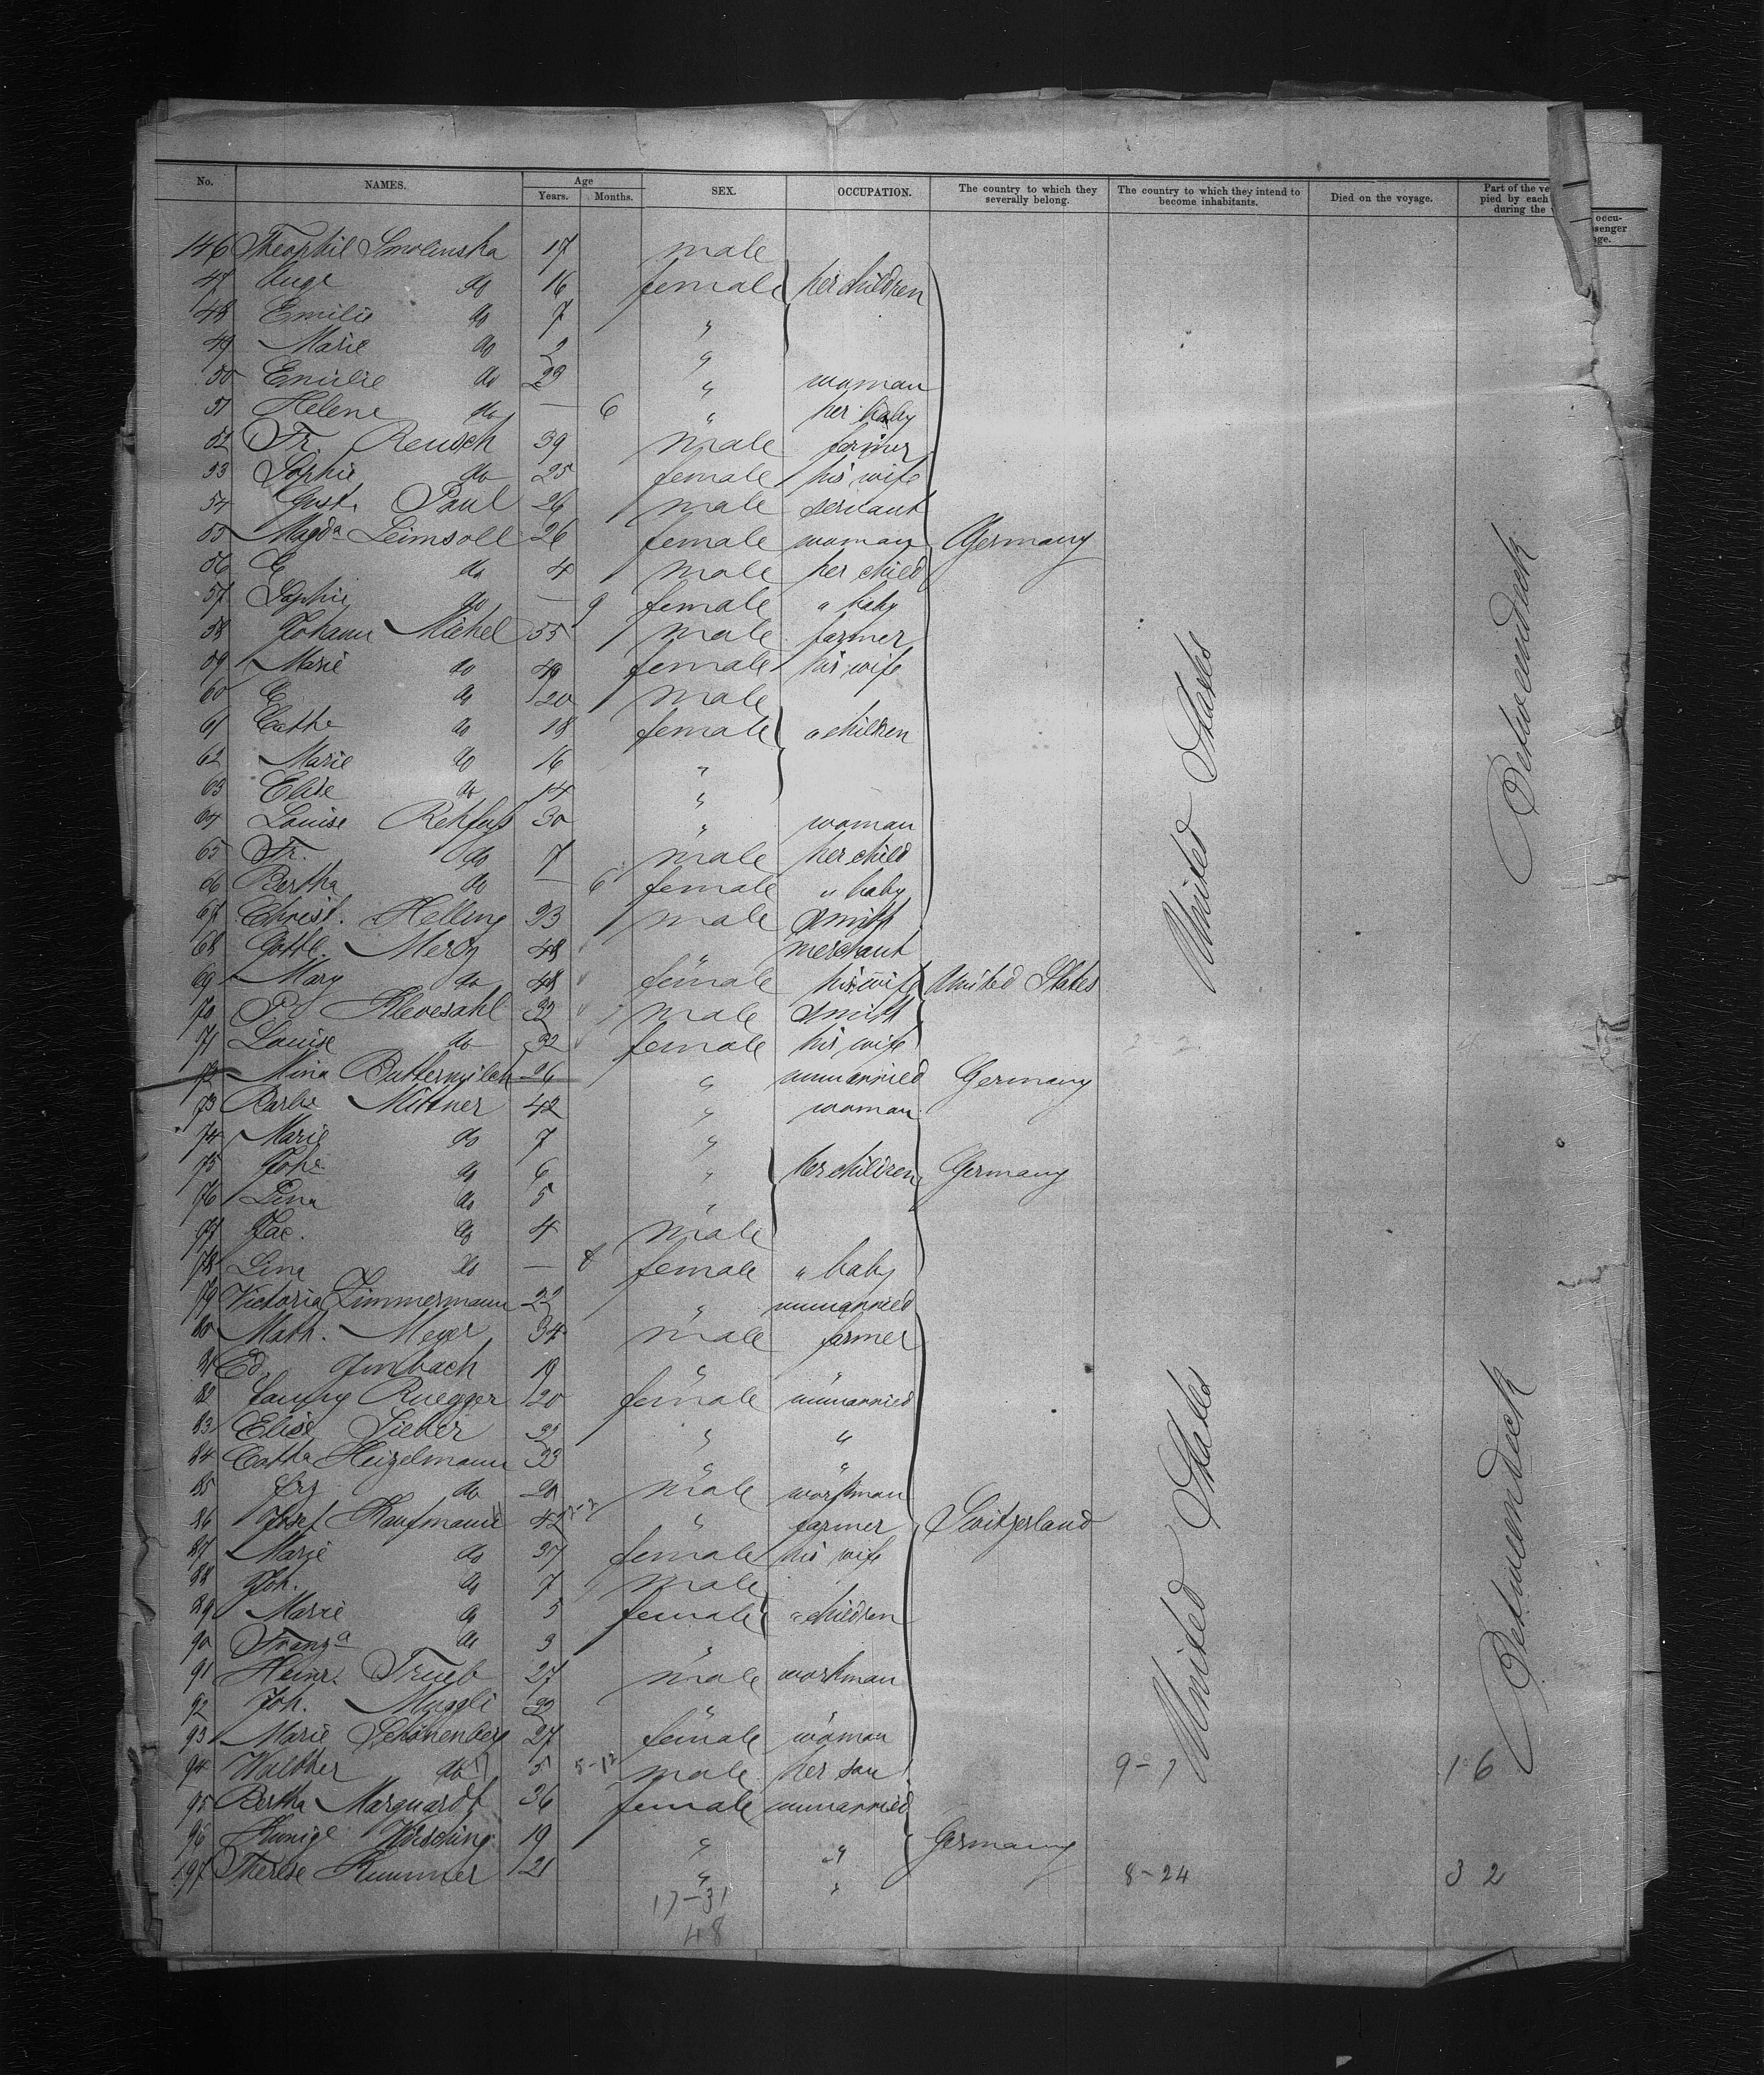 No. NAMES. Age Years. Months. SEX. OCCUPATION. The country to which they severally belong. The country to which they intend to become inhabitants. Died on the voyage. Part of the ve pied by each during the occu- senger ge.
146 Theophil Smolinska 17 male
47 Auge do 16 female her children
48 Emilie do 7 "
49 Marie do 2 "
50 Emilie do 23 " woman
51 Helene do — 6 " her baby
52 Fr. Reusch 39 male farmer
53 Sophie do 25 female his wife
54 Gust. Paul 26 male servant
55 Magda Leimsoll 26 female woman Germany
56 E do 4 male her child
57 Sophie do — 9 female " baby
58 Johann Michel 55 male farmer
59 Marie do 49 female his wife
60 E do 20 male
61 Cathe do 18 female " children
62 Marie do 16 "
63 Elise do 14 "
64 Louise Rehfuß 30 " woman
65 Fr. do 7 male her child
66 Bertha do — 6 female " baby
67 Christ. Helling 23 male smith
68 Gottl. Merz 48 " merchant
69 Mary do 48 female his wife United States
70 P. Klevesahl 32 male smith
71 Louise do 32 female his wife
72 Mina Buttermilch 26 " unmarried Germany
73 Barbe Mittner 42 " woman
74 Marie do 7 "
75 Johe do 6 " her children Germany
76 Lina do 5 "
77 Jac. do 4 male
78 Lina do — 8 female " baby
79 Victoria Zimmermann 22 " unmarried
80 Math. Meyer 34 male farmer
81 Ed. Imbach 19 " "
82 Fanny Ruegger 20 female unmarried
83 Elise Sieber 22 " "
84 Catha Heizelmann 23 " "
85 Frz do 20 male workman
86 Josef Kaufmann 42 " farmer Switzerland
87 Marie do 37 female his wife
88 Joh. do 7 male
89 Marie do 5 female " children
90 Franza do 3 "
91 Heinr. Trueb 27 male workman
92 Joh. Muggli 22 " "
93 Marie Schönenberg 27 female woman
94 Walther do 5 male her son 9-7 16
95 Bertha Marquardt 36 female unmarried
96 Kunige Wirsching 19 " " Germany
197 Therese Kummer 21 " " 8-24 32
17-31
48
United States
Betweendeck
United States
Betweendeck